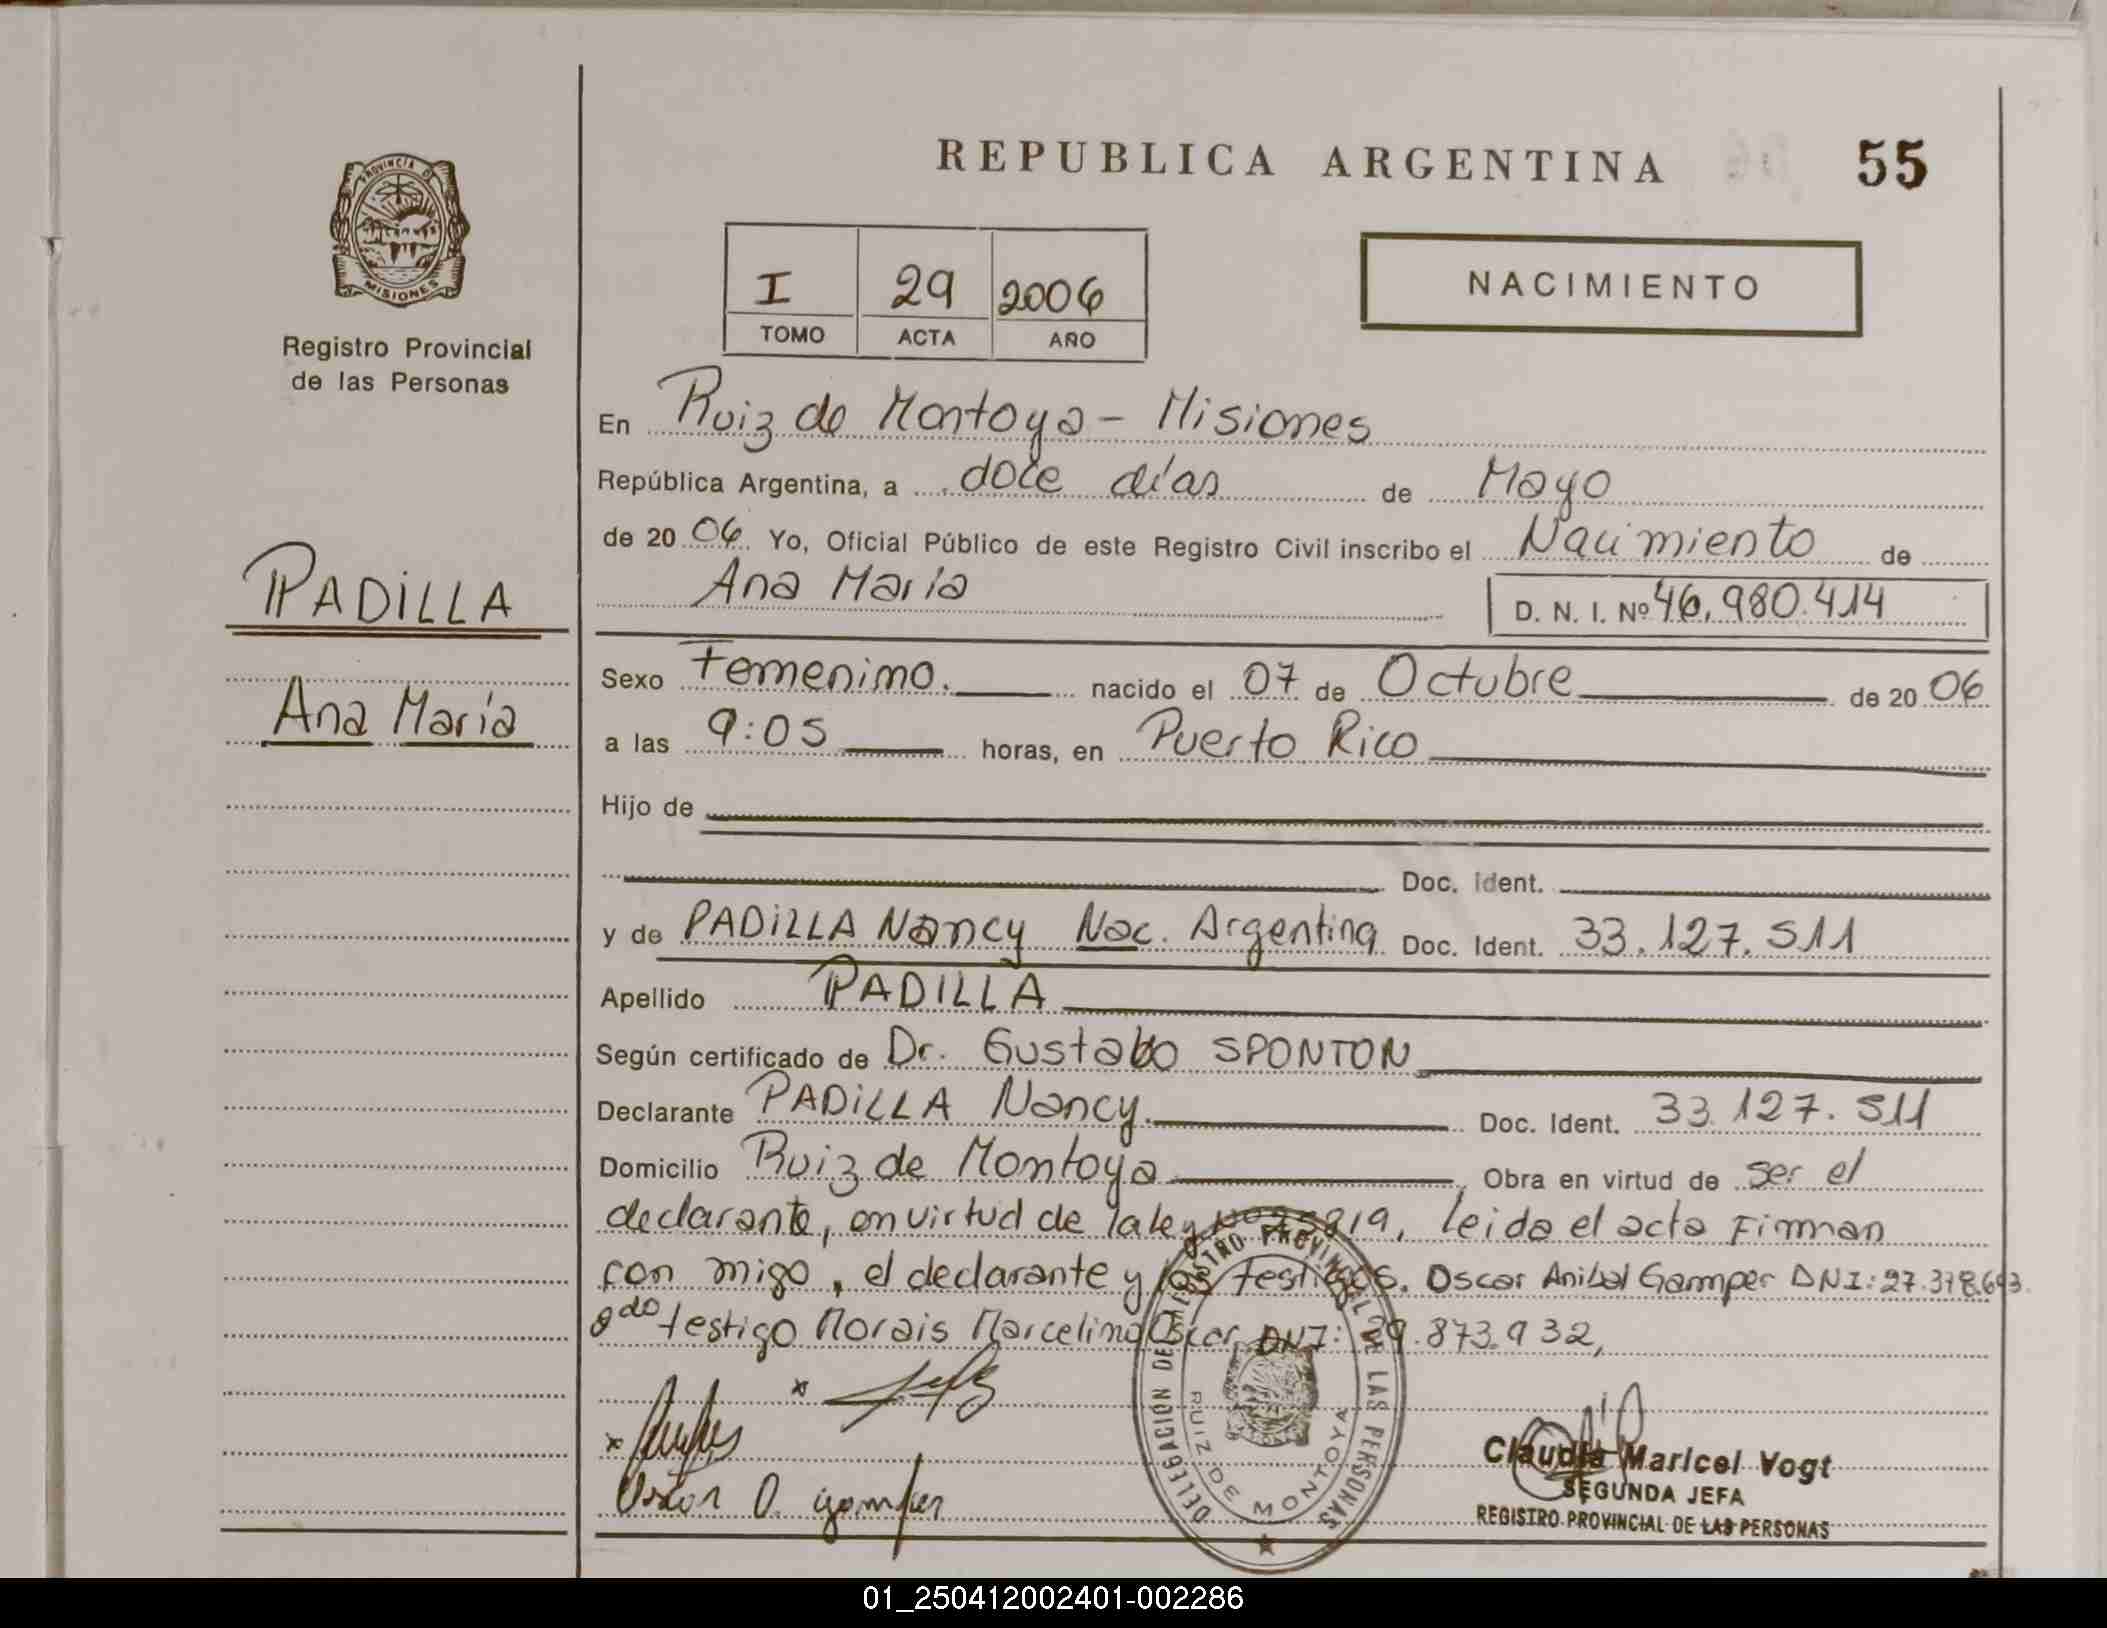 REPUBLICA ARGENTINA
55
PROVINCIA DE MISIONES
Registro Provincial
de las Personas
I 29 2006
TOMO ACTA AÑO
NACIMIENTO
En Ruiz de Montoya - Misiones
República Argentina, a doce días de Mayo
de 20 06 Yo, Oficial Público de este Registro Civil inscribo el Nacimiento de
Ana María D. N. I. Nº 46.980.414
PADILLA
Ana María
Sexo Femenino. nacido el 07 de Octubre de 20 06
a las 9:05 horas, en Puerto Rico
Hijo de
Doc. Ident.
y de PADILLA Nancy Nac. Argentina Doc. Ident. 33.127.511
Apellido PADILLA
Según certificado de Dr. Gustabo SPONTON
Declarante PADILLA Nancy. Doc. Ident. 33.127.511
Domicilio Ruiz de Montoya Obra en virtud de ser el
declarante, en virtud de la ley leida el acta Firman
con migo, el declarante y los testigos. Oscar Anibal Gamper DNI: 27.378.693.
2do testigo Morais Marcelino Oscar DNI: 29.873.932,
Oscar A. gamper
DELEGACION DEL REGISTRO PROVINCIAL DE LAS PERSONAS
RUIZ DE MONTOYA
Claudia Maricel Vogt
SEGUNDA JEFA
REGISTRO PROVINCIAL DE LAS PERSONAS
01_250412002401-002286